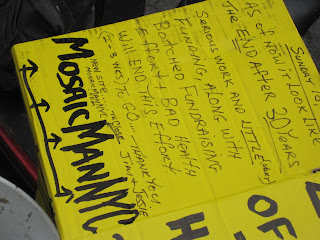 SUNDAY 18,
AS OF NOW IT LOOK LIKE
THE END AFTER 30 YEARS
SERIOUS WORK AND LITTLE
FUNDING, ALONG WITH
BOTCHED FUNDRAISING
EFFORT & BAD HEALTH
WILL END THIS EFFORT
WKS) TO GO... THANK YOU
JIM & JESSIE
NEW SITE
MOSAICMANNYC
OF
H